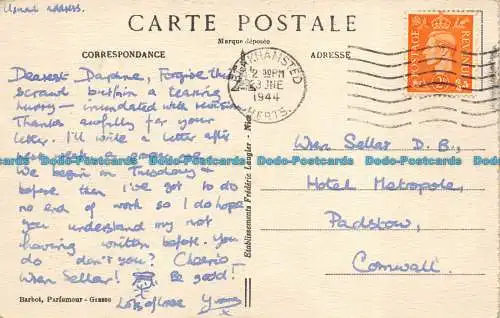 Usual address.
CARTE POSTALE
Marque déposée
CORRESPONDANCE
ADRESSE
BERKHAMSTED
2 30PM
3 JNE
1944
HERTS.
POSTAGE
REVENUE
Dearest Daphne, Forgive this
scrawl but I'm in a tearing
hurry – inundated with revision
Thanks awfully for your
letter. I'll write a letter after
We begin on Tuesday &
before then I've got to do
no end of work so I do hope
you understand my not
having written before. You
do don't you? Cheerio –
Wren Sellar! Be good!
Lots of love
Wren Sellar D. B.,
Hotel Metropole,
Padstow,
Cornwall.
Etablissements Frédéric Laugier - Nice
Barbot, Parfumeur - Grasse
Dodo-Postcards Dodo-Postcards Dodo-Postcards Dodo-Postcards Dodo-Postcards